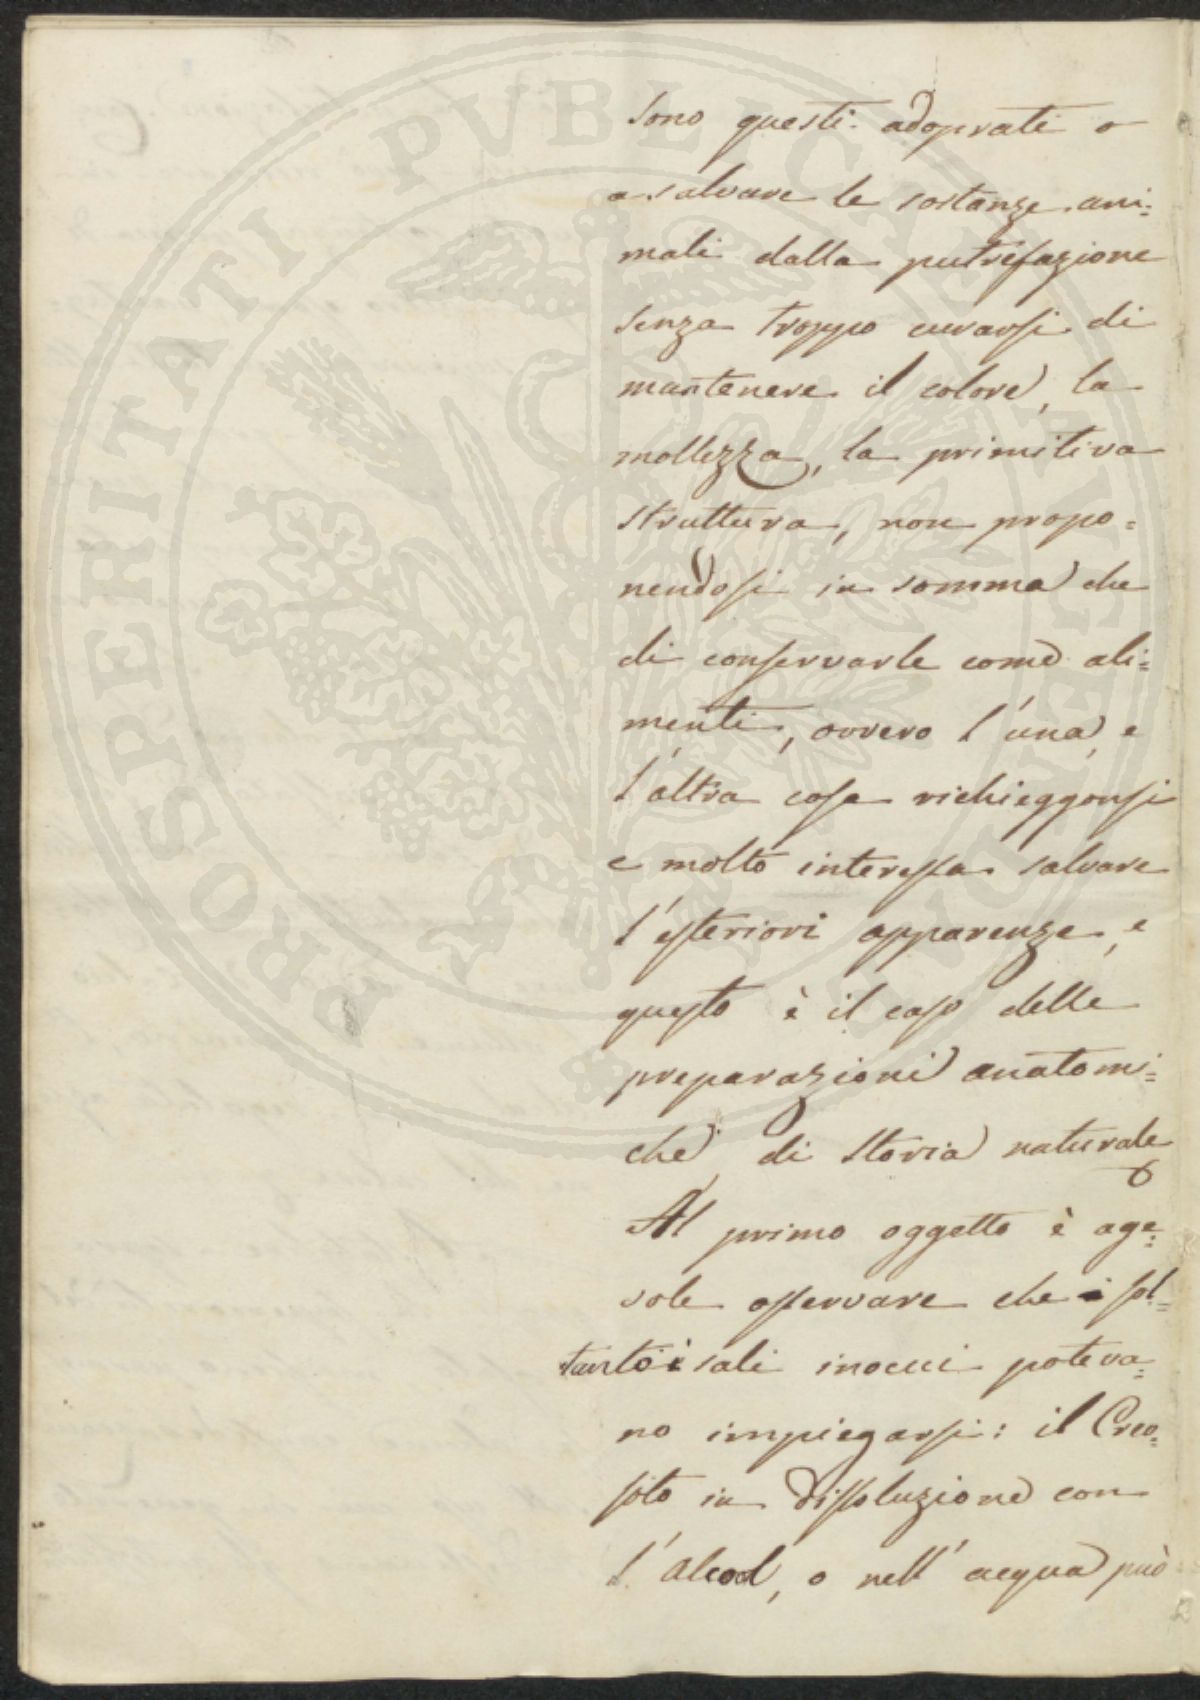 sono questi adoprati o
a salvare le sostanze ani=
mali dalla putrefazione
senza troppo curarsi di
mantenere il colore, la
mollezza, la primitiva
struttura, non propo=
nendosi in somma che
di conservarle come ali=
menti, ovvero l'una, e
l'altra cosa richieggonsi
e molto interessa salvare
l'esteriori apparenze, e
questo è il caso delle
preparazioni anatomi=
che, di storia naturale
Al primo oggetto è age=
vole osservare che sol=
tanto i sali inocui poteva=
no impiegarsi: il Creo=
soto in dissoluzione con
l'alcool, o nell'acqua può
PROSPERITATI PVBLICAE AVGENDAE